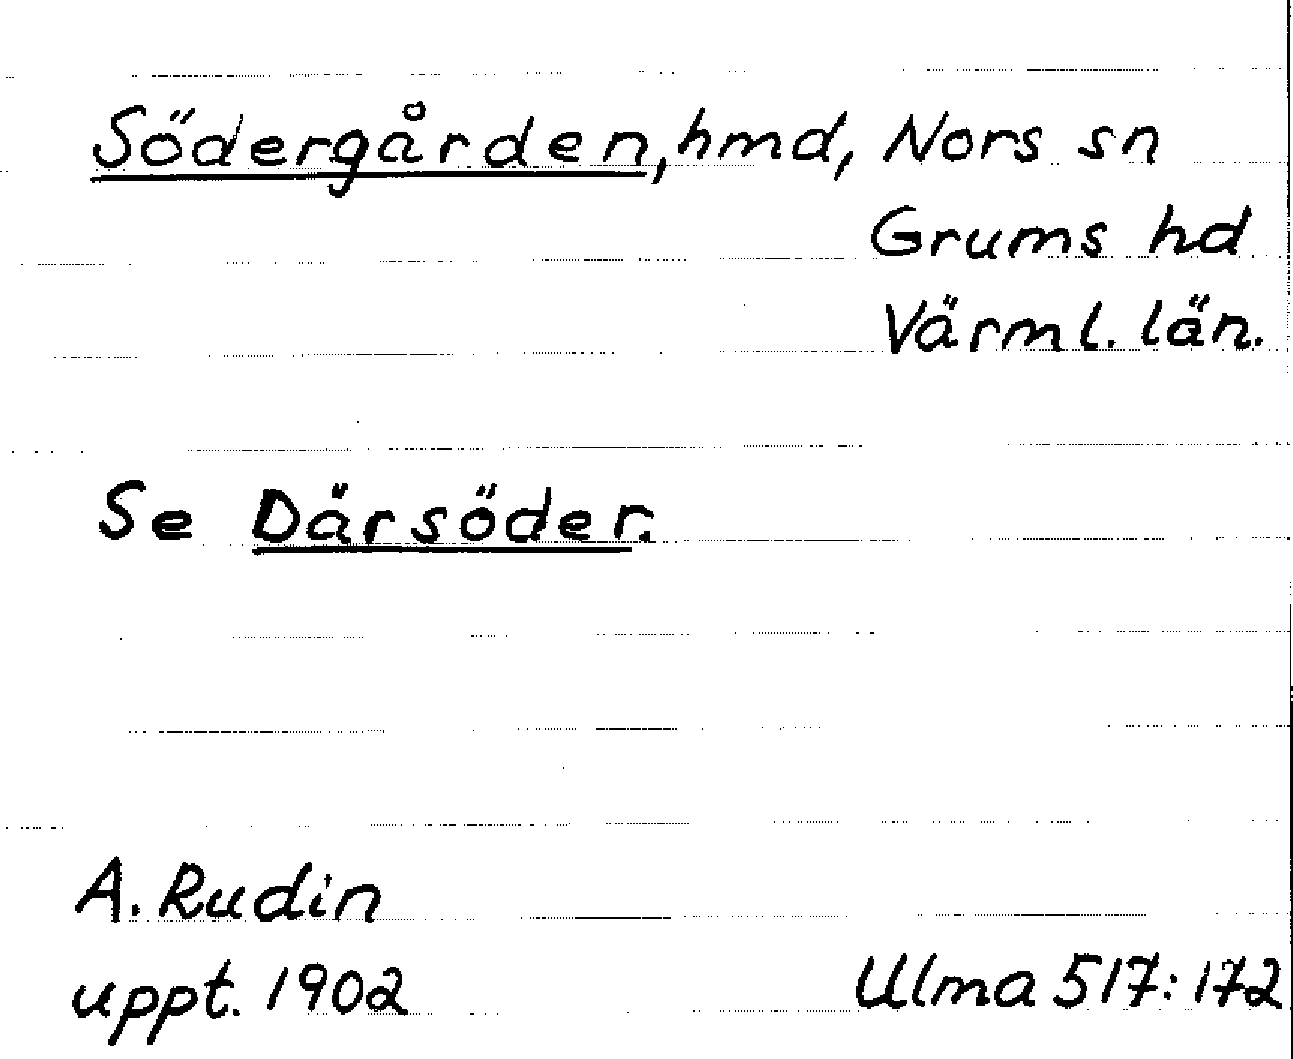 Södergården, hmd, Nors sn
Grums hd
Värml. län.
Se Därsöder.
A. Rudin
uppt. 1902
Ulma 517:172